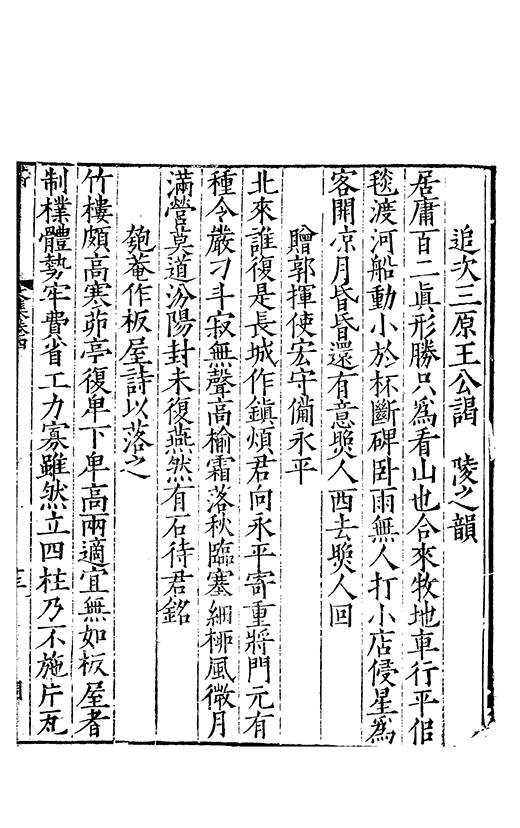 追次三原王公謁　陵之韻
居庸百二眞形勝只爲看山也合來牧地車行平侣
毯渡河船動小於杯斷碑卧雨無人打小店侵星爲
客開凉月昏昏還有意㷼人西去㷼人回
贈郭揮使宏守備永平
北來誰復是長城作鎮煩君向永平寄重將門元有
種令嚴刁斗寂無聲高榆霜落秋臨塞細栁風微月
滿營莫道汾陽封未復燕然有石待君銘
匏菴作板屋詩以落之
竹樓頗高寒茆亭復卑下卑高兩適宜無如板屋者
制樸體勢牢費省工力寡雖然立四柱乃不施片瓦